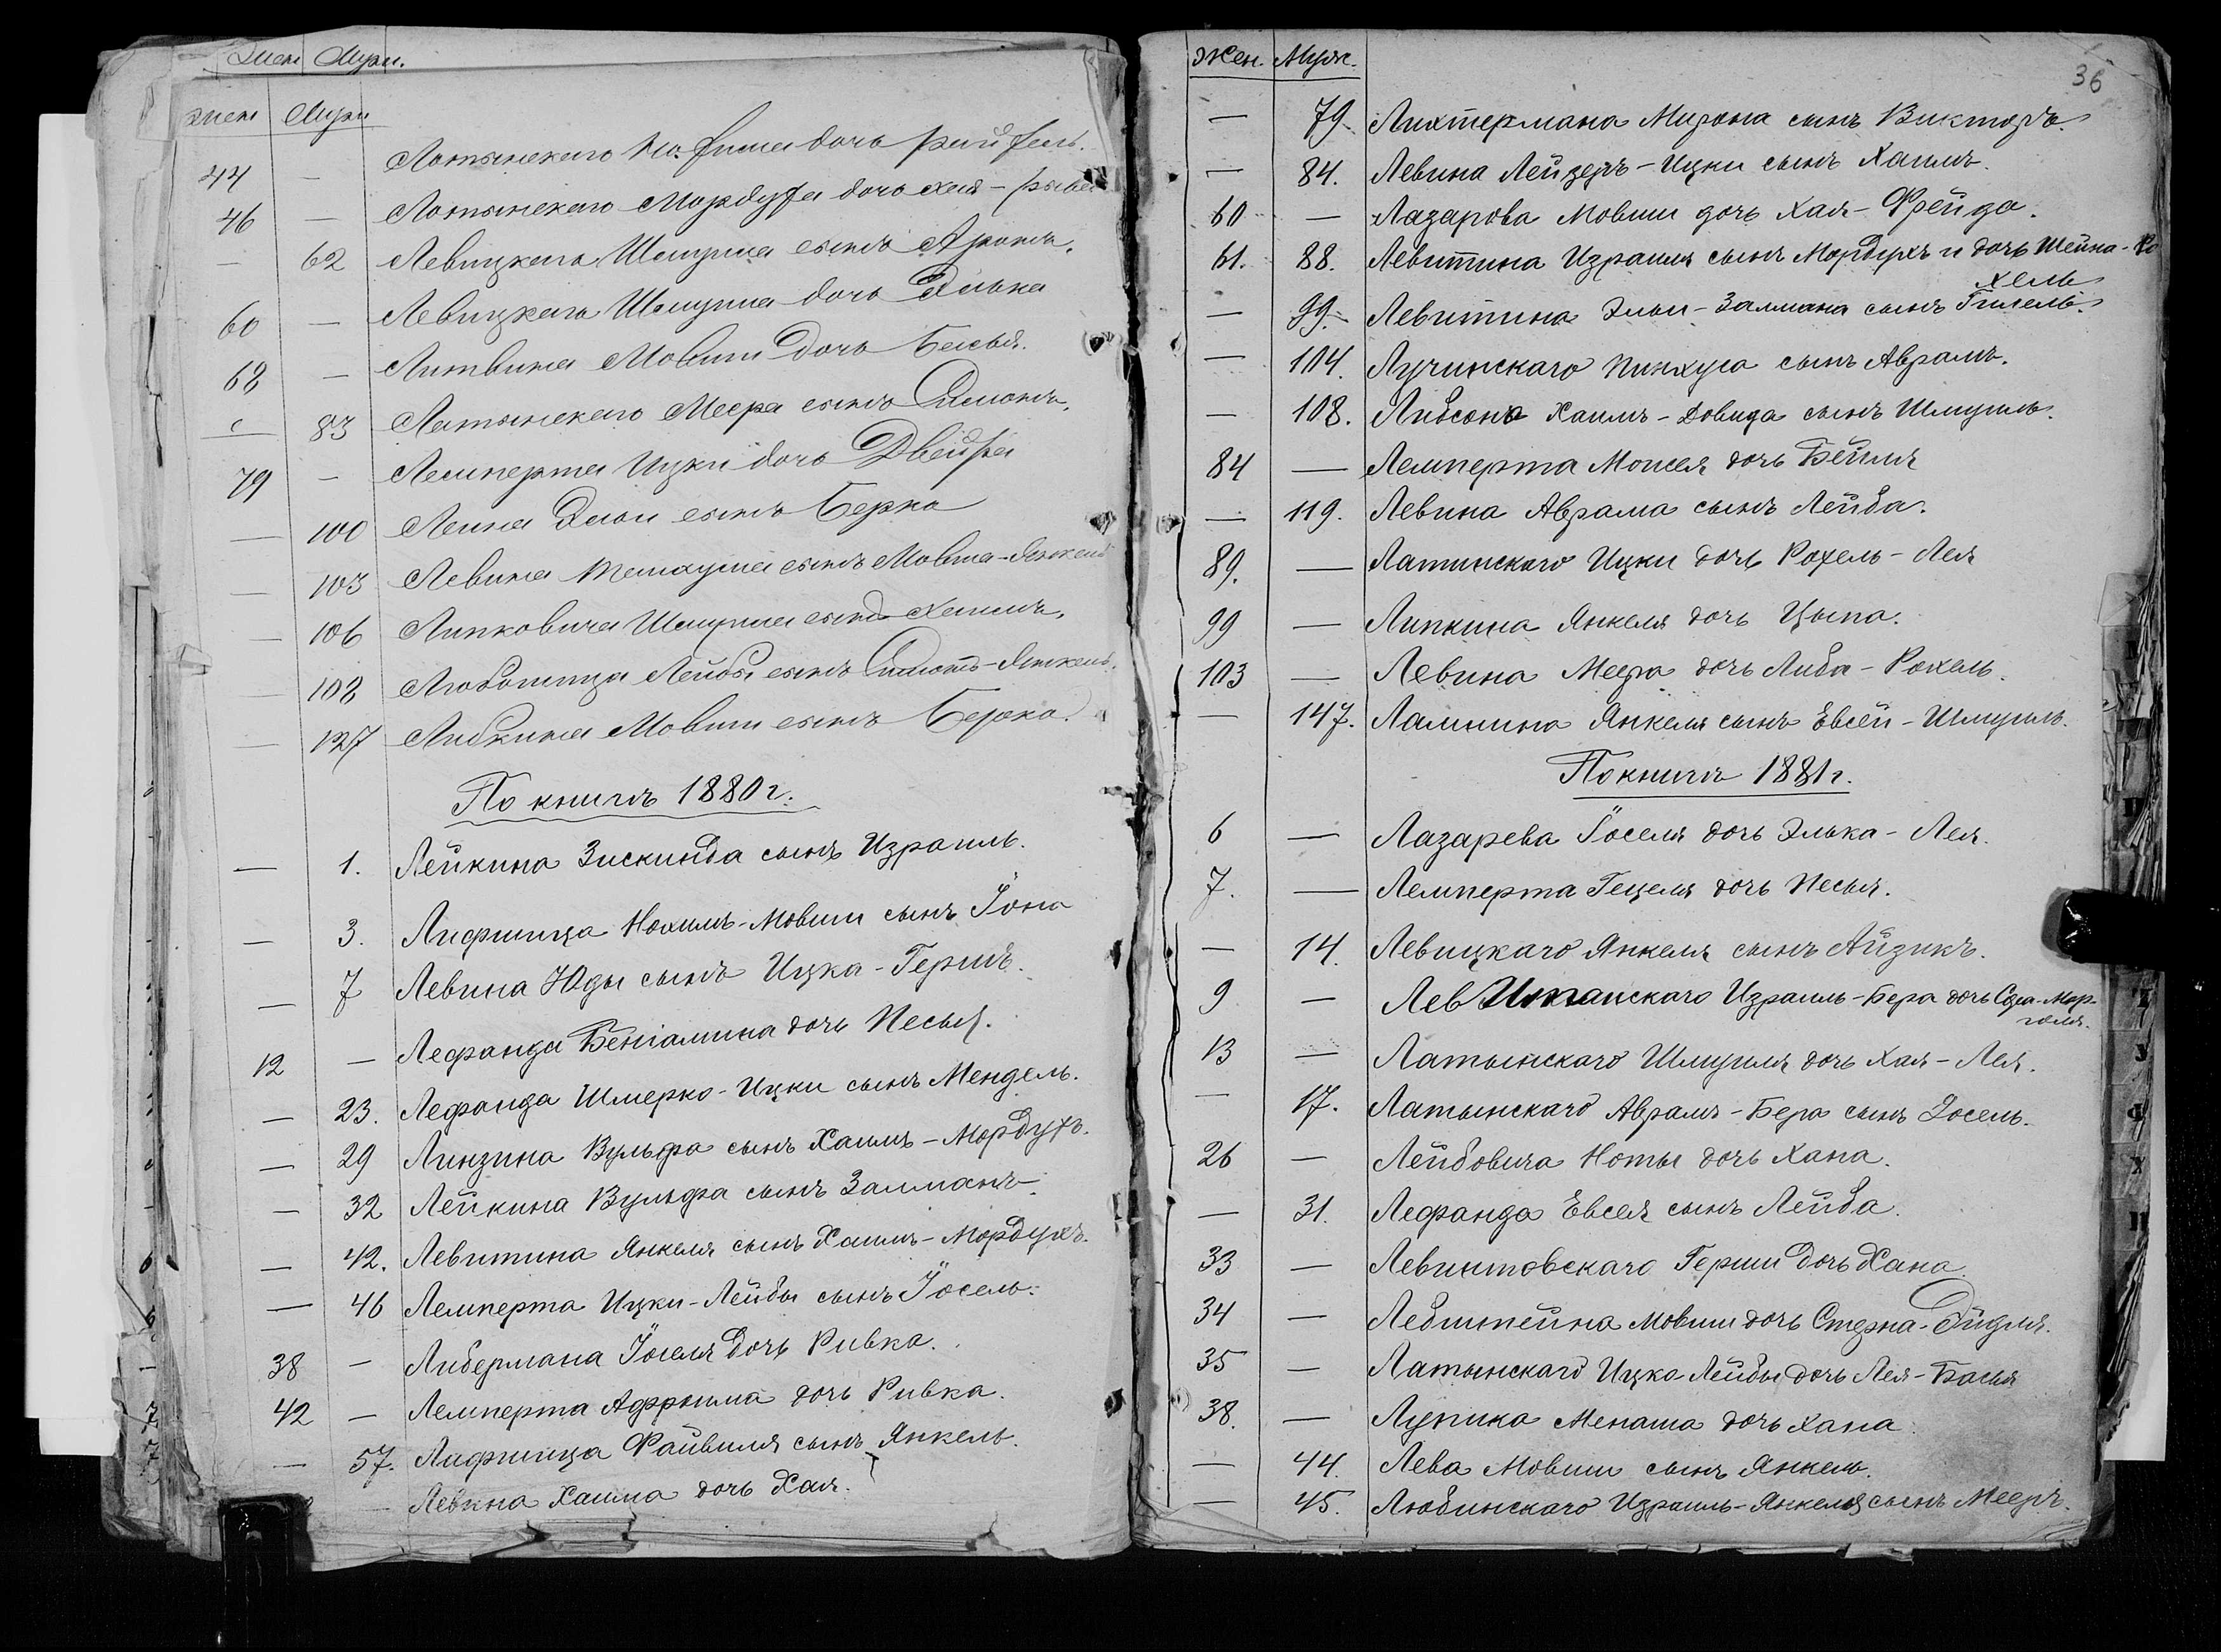 Жен Муж.
Жен Муж
44 — Латынскаго дочь
46 — Латынскаго Мордуха дочь Хая-
— 62 Левицкаго Шмуила сынъ Аронъ.
60 — Левицкаго Шмуила дочь Элька
68 — Литвина Мовши дочь Басья.
— 83 Латынскаго Меера сынъ Симонъ.
79 — Лемперта Ицки дочь Двейра
— 100 сынъ Берко
— 103 Левина сынъ Мовша-Янкель
— 106 Липковича Шмуила сынъ Хаимъ.
— 108 Любошица Лейбы сынъ -Янкель.
— 127 Либкина Мовши сынъ Берко.
По книгѣ 1880 г.
— 1. Лейкина Зискинда сынъ Израиль.
— 3. Лифшица Нохимъ-Мовши сынъ Іона
— 7 Левина Юды сынъ Ицка-Гершъ.
12 — Лефанда Беніамина дочь Песья.
— 23. Лефанда Шмерко-Ицки сынъ Мендель.
— 29 Линзина Вульфа сынъ Хаимъ-Мордухъ.
— 32 Лейкина Вульфа сынъ Залманъ.
— 42. Левитина Янкеля сынъ Хаимъ-Мордухъ.
— 46 Лемперта Ицки-Лейбы сынъ Іосель.
38 — Либермана Іоселя дочь Ривка.
42 — Лемперта Афроима дочь Ривка.
— 57. Лифшица Файвиля сынъ Янкель.
— Левина Хаима дочь Хая.
36
Жен. Муж.
— 79. Лихтермана Мирона сынъ Викторъ.
— 84. Левина Лейзеръ-Ицки сынъ Хаимъ.
60 — Лазарова Мовши дочь Хая-Фрейда.
61. 88. Левитина Израиля сынъ Мордухъ и дочь Шейна-Ро
хель
— 99. Левитина Эльи-Залмана сынъ Гилель.
— 104. Лучинскаго Пинхуса сынъ Аврамъ.
— 108. Либсона Хаимъ-Довида сынъ Шмуиль.
84 — Лемперта Моисея дочь Бейля
— 119. Левина Аврама сынъ Лейба.
89. — Латинскаго Ицки дочь Рохель-Лея
99 — Липкина Янкеля дочь Цыпа.
103 — Левина Меера дочь Либа-Рохель.
— 147. Ламнина Янкеля сынъ Евсей-Шмуиль.
По книгѣ 1881 г.
6 — Лазарева Іоселя дочь Элька-Лея.
7. — Лемперта Гецеля дочь Песья.
— 14. Левицкаго Янкеля сынъ Айзикъ.
9 — Левитанскаго Израиль-Бера дочь Сора-Мар-
голя.
13 — Латынскаго Шмуиля дочь Хая-Лея.
— 17. Латынскаго Аврамъ-Бера сынъ Іосель.
26 — Лейбовича Ноты дочь Хана.
— 31. Лефанда Евсея сынъ Лейба.
33 — Левинтовскаго Герши дочь Хана.
34 — Лебштейна Мовши дочь Стерна-Эйдля.
35 — Латынскаго Ицка Лейбы дочь Лея-Басья
38. — Лупика Менаша дочь Хана.
— 44. Лева Мовши сынъ Янкель.
— 45. Любинскаго Израиль-Янкеля сынъ Мееръ.